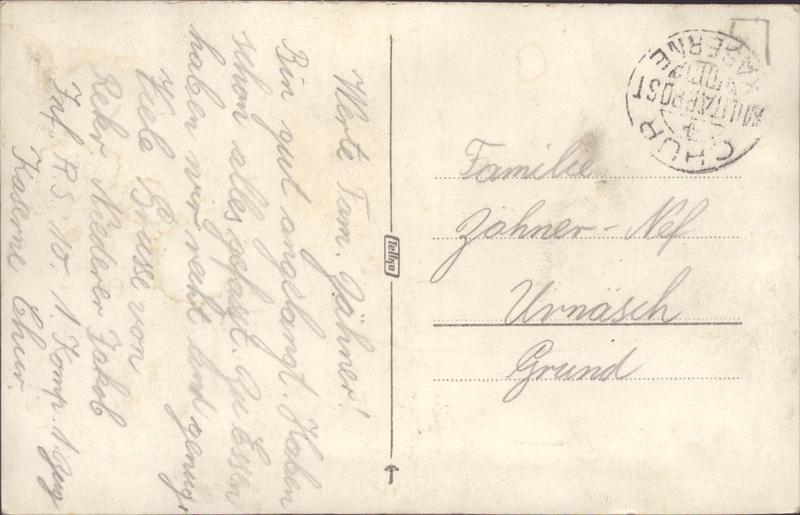 Werte Fam. Zähner!
Bin gut angelangt. Haben
schon alles gefasst. Zu Essen
haben wir recht und genug.
Viele Grüsse von
Rekr Niederer Jakob
Inf. R.S. 10 1. Komp. 1. Zug
Kaserne Chur.
Tellko
CHUR
KASERNE
MILITÄRPOST
Familie
Zähner-Nef
Urnäsch
Grund